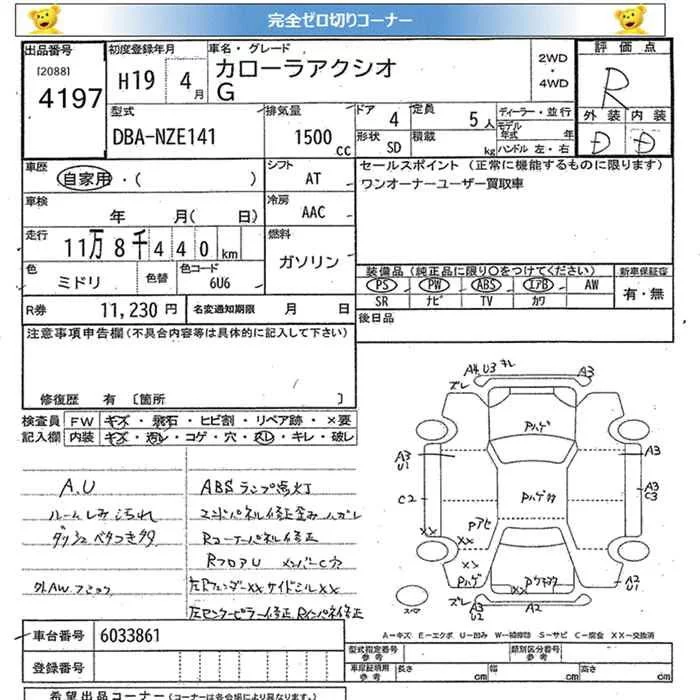 完全ゼロ切りコーナー
出品番号 初度登録年月 車名・グレード 評価点
[2088] 4197 H19 4月 カローラアクシオ G 2WD・4WD R
外装 内装
D D
型式 排気量 ドア 定員 ディーラー・並行
DBA-NZE141 1500cc 4 5人 モデル年式 年
形状 SD 積載 kg ハンドル 左・右
車歴 シフト セールスポイント(正常に機能するものに限ります)
自家用・( ) AT ワンオーナーユーザー買取車
車検 冷房
年 月( 日) AAC
走行 燃料
11万8千440km ガソリン
色 色替 色コード 装備品(純正品に限り○をつけてください) 新車保証書
ミドリ 6U6 PS PW ABS エアB AW 有・無
SR ナビ TV カワ
R券 11,230円 名変通知期限 月 日 後日品
注意事項申告欄(不具合内容等は具体的に記入して下さい)
修復歴 有 〔箇所 〕
検査員 FW キズ・飛石・ヒビ割・リペア跡・×要
記入欄 内装 キズ・汚レ・コゲ・穴・スレ・キレ・破レ
A.U ABSランプ点灯
ルームしみ汚れ コアパネル修正歪みハガレ
ダッシュベタつき多 Rコーナーパネル修正
RフロアU メンバーC穴
外AW 左Rフェンダーxxサイドシルxx
左センターピラー修正 Rインパネ修正
A4 U3 キレ
ズレ A3
Pハゲ
A3 U1 A3
C2 A3 C3
Pハゲ
Pアセ
xx xx
xx xx
Pハゲ A2 U1
xx
ズレ A3 U2 A2
スペア
A－キズ E－エクボ U－凹み W－補修跡 S－サビ C－腐食 XX－交換済
車台番号 6033861
登録番号
型式指定番号 参考 類別区分番号 参考
車庫証明用 参考 長さ cm 幅 cm 高さ cm
希望出品コーナー(コーナーは各会場により異なります。)